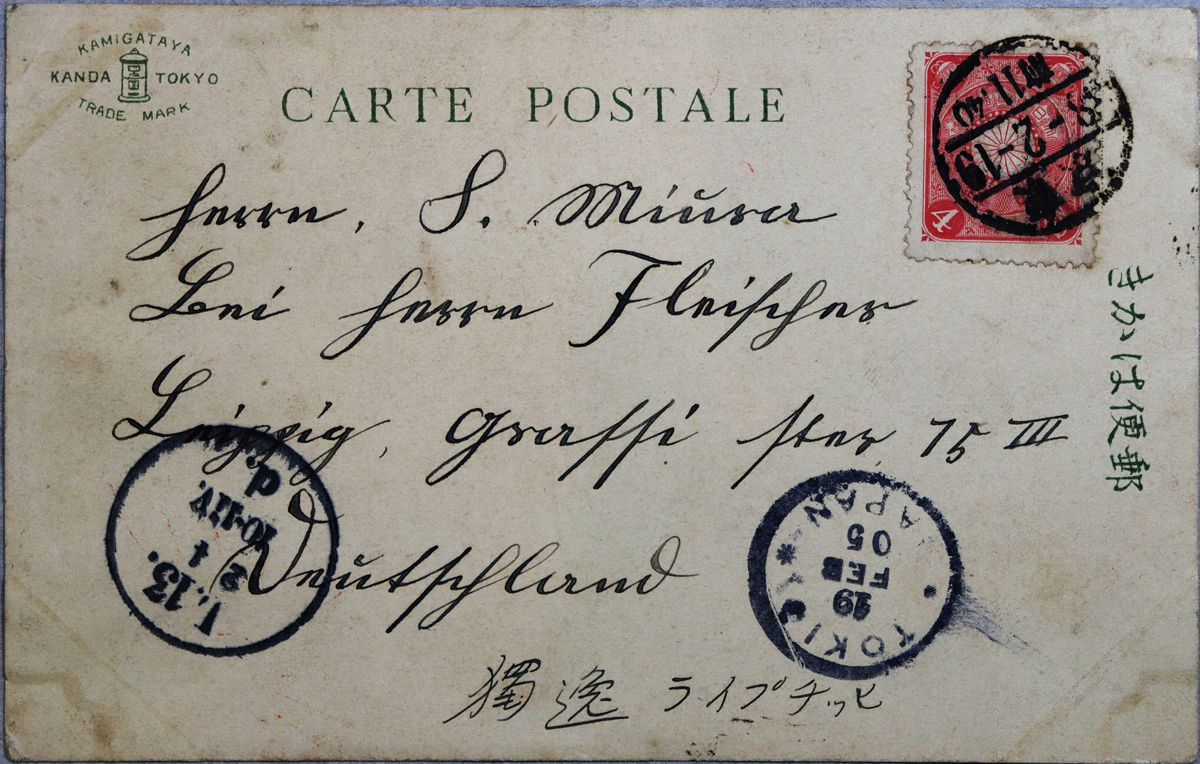 KAMIGATAYA
KANDA TOKYO
TRADE MARK
CARTE POSTALE
4
38-2-19
前11.40
Herrn, S. Miura
Bei Herrn Fleischer
Leipzig, Grassi ster 75 III
Deutschland
獨逸 ライプチッヒ
きかは便郵
TOKIO
JAPAN
19
FEB
05